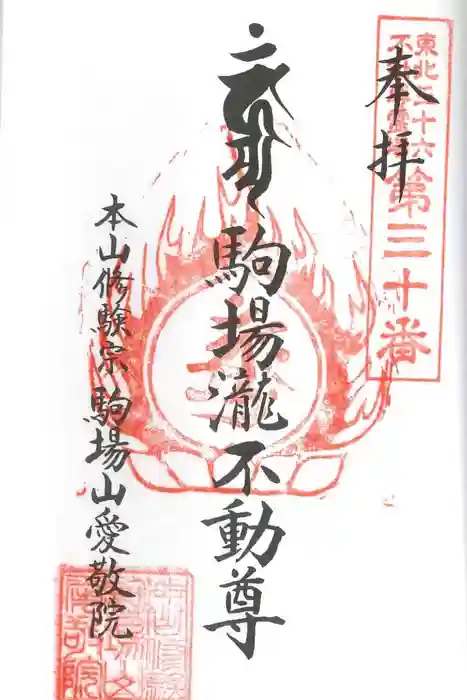 奉拝
東北三十六
不動尊霊場
第三十番
駒場瀧不動尊
本山修験宗 駒場山愛敬院